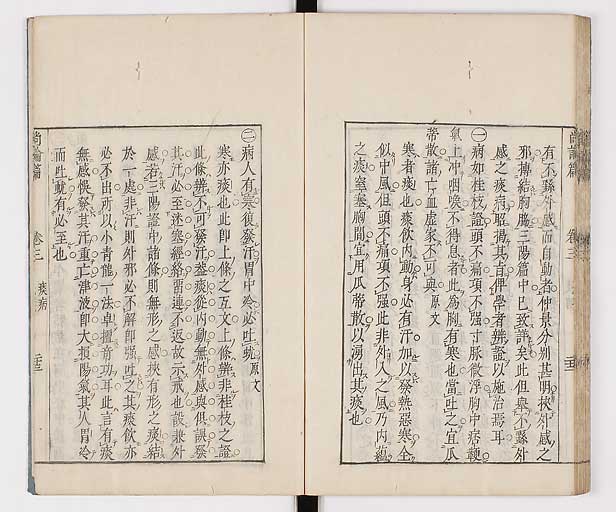 有不繇外感而自動者仲景分別甚明挾外感之
邪摶結胸脇三陽篇中已致詳矣此但與不繇外
感之痰病昭揭其旨俾學者辨證以施治焉耳
㊀病如桂枝證頭不痛項不强寸脉微浮胸中痞鞕
氣上冲咽喉不得息者此爲胸有寒也當吐之宜瓜
蒂散諸亡血虛家不可與原文
寒者痰也痰飲內動身必有汗加以發熱惡寒全
似中風但頭不痛項不强此非外入之風乃內蘊
之痰窒塞胸間宜用瓜蒂散以湧出其痰也
㊁病人有寒復發汗胃中冷必吐蚘原文
寒亦痰也此即上條之互文上條辨非桂枝之證
此條辨不可發汗葢痰從內動無外感與俱誤發
其汗必至迷塞經絡畱連不返故示戒也設兼外
感若三陽證中諸條則無形之感挾有形之痰結
於一處非汗則外邪必不解即强吐之其痰飲亦
必不出所以小青龍一法卓擅奇功耳此言有痰
無感悞發其汗重亡津液即大損陽氣其人胃冷
而吐蚘有必至也
尚論篇
卷三
痰病